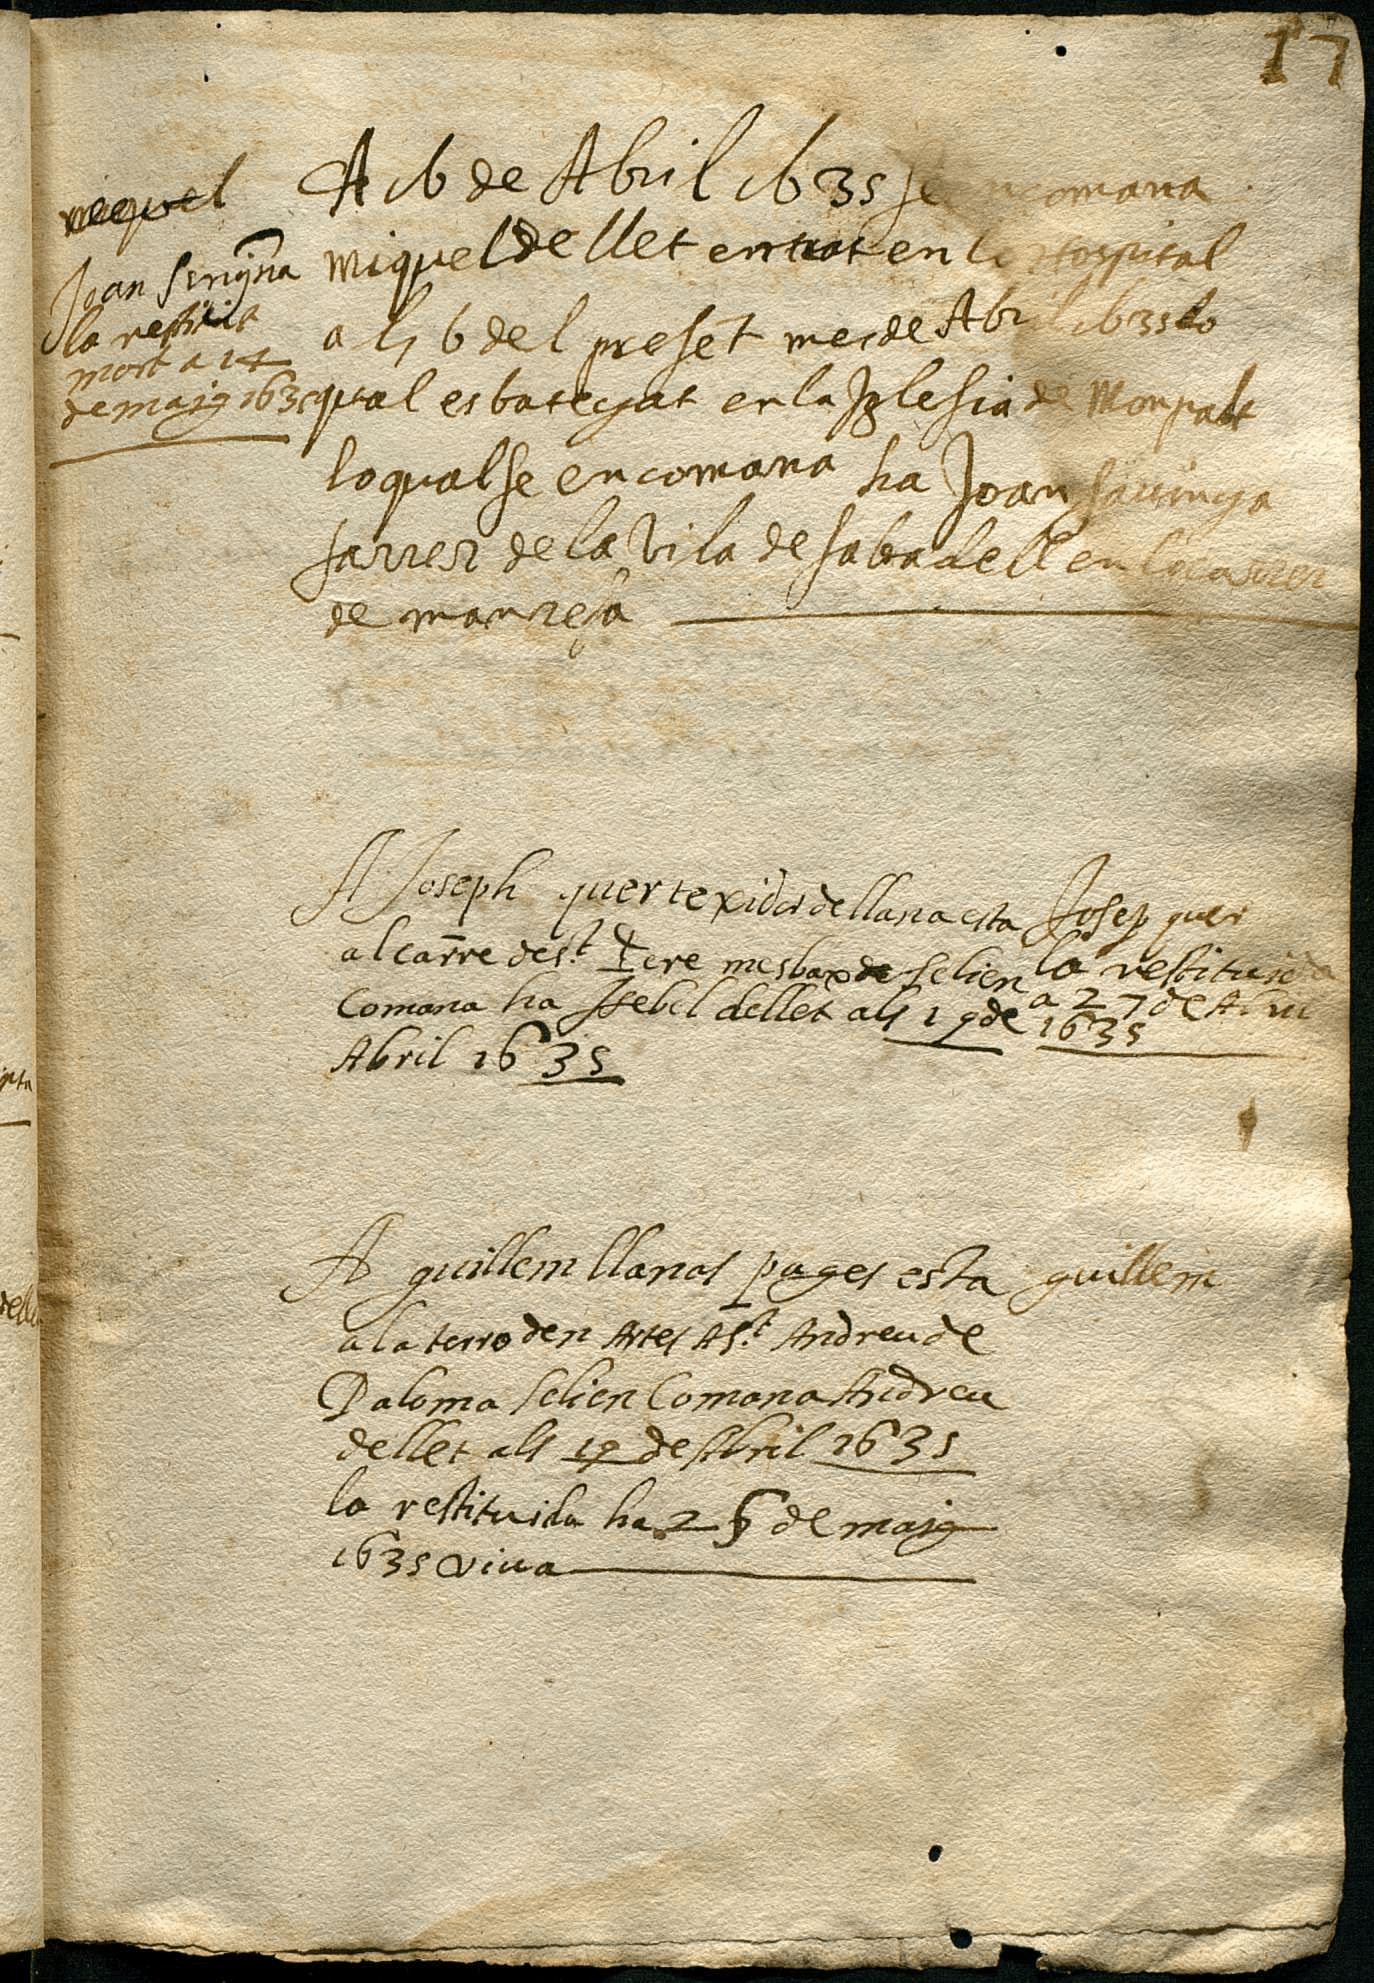 17
miquel
Joan
la restituit
mort a 14
de maig 1635
A 16 de Abril 1635 se encomana
miquel de llet entrat en lo Hospital
als 6 del presēt mes de Abril 1635 lo
qual es bategat en la Iglesia de Monpalt
lo qual se encomana ha Joan
farrer de la vila de sabadell en lo carrer
de manresa
A Joseph quer texidor de llana esta
al carrē de s.t Pere mes bax de se li en
comana ha Isebel dellet als 19 de
Abril 1635
Josep quer
la restituida
a 27 de Abril
1635
A guillem llanas pages esta
a la terro den Artes A s.t Andreu de
Paloma se li en Comana Andreu
dellet als 19 de Abril 1635
la restituida ha 26 de maig
1635 viua
guillem